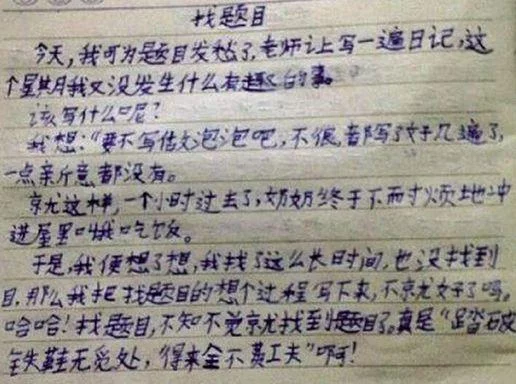 找题目
今天,我可为题目发愁了,老师让写一遍日记,这
个星期我又没发生什么有趣的事。
该写什么呢?
我想:“要不写做泡泡吧,不很,都写了好几遍了,
一点新意都没有。
就这样,一个小时过去了,奶奶终于不耐烦地冲
进屋里叫我吃饭。
于是,我便想了想,我找了这么长时间,也没找到
目,那么我把找题目的想个过程写下来,不就好了吗。
哈哈!找题目,不知不觉就找到题目了。真是“踏破
铁鞋无觅处,得来全不费工夫”啊!